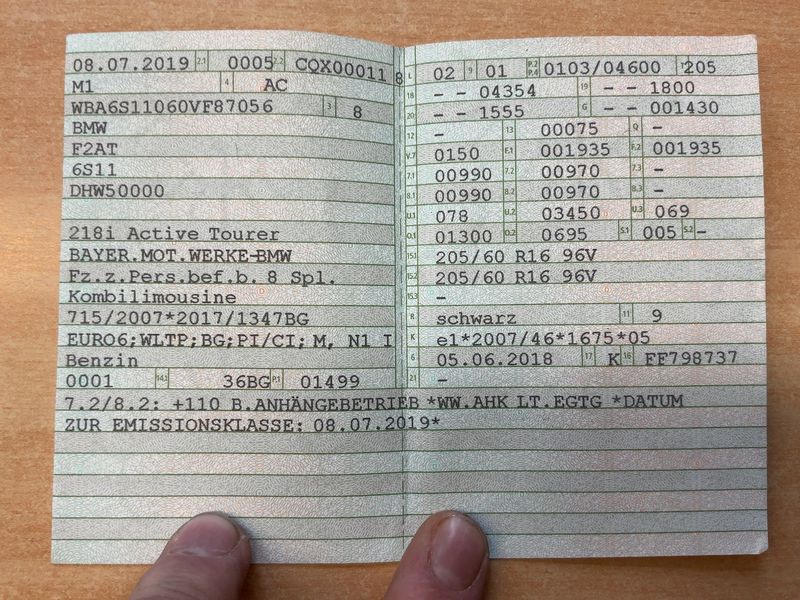 08.07.2019 2.1 0005 2.2 CQX00011 8
M1 4 AC
WBA6S11060VF87056 3 8
BMW
F2AT
6S11
DHW50000
218i Active Tourer
BAYER.MOT.WERKE-BMW
Fz.z.Pers.bef.b. 8 Spl.
Kombilimousine
715/2007*2017/1347BG
EURO6;WLTP;BG;PI/CI; M, N1 I
Benzin
0001 14.1 36BG P.1 01499
L 02 9 01 P.2 P.4 0103/04600 205
18 - - 04354 19 - - 1800
20 - - 1555 G - - 001430
12 - 13 00075 Q -
V.7 0150 F.1 001935 F.2 001935
7.1 00990 7.2 00970 7.3 -
8.1 00990 8.2 00970 8.3 -
U.1 078 U.2 03450 U.3 069
O.1 01300 O.2 0695 S.1 005 S.2 -
15.1 205/60 R16 96V
15.2 205/60 R16 96V
15.3 -
R schwarz 11 9
K e1*2007/46*1675*05
6 05.06.2018 17 K 16 FF798737
21 -
7.2/8.2: +110 B.ANHÄNGEBETRIEB *WW.AHK LT.EGTG *DATUM
ZUR EMISSIONSKLASSE: 08.07.2019*